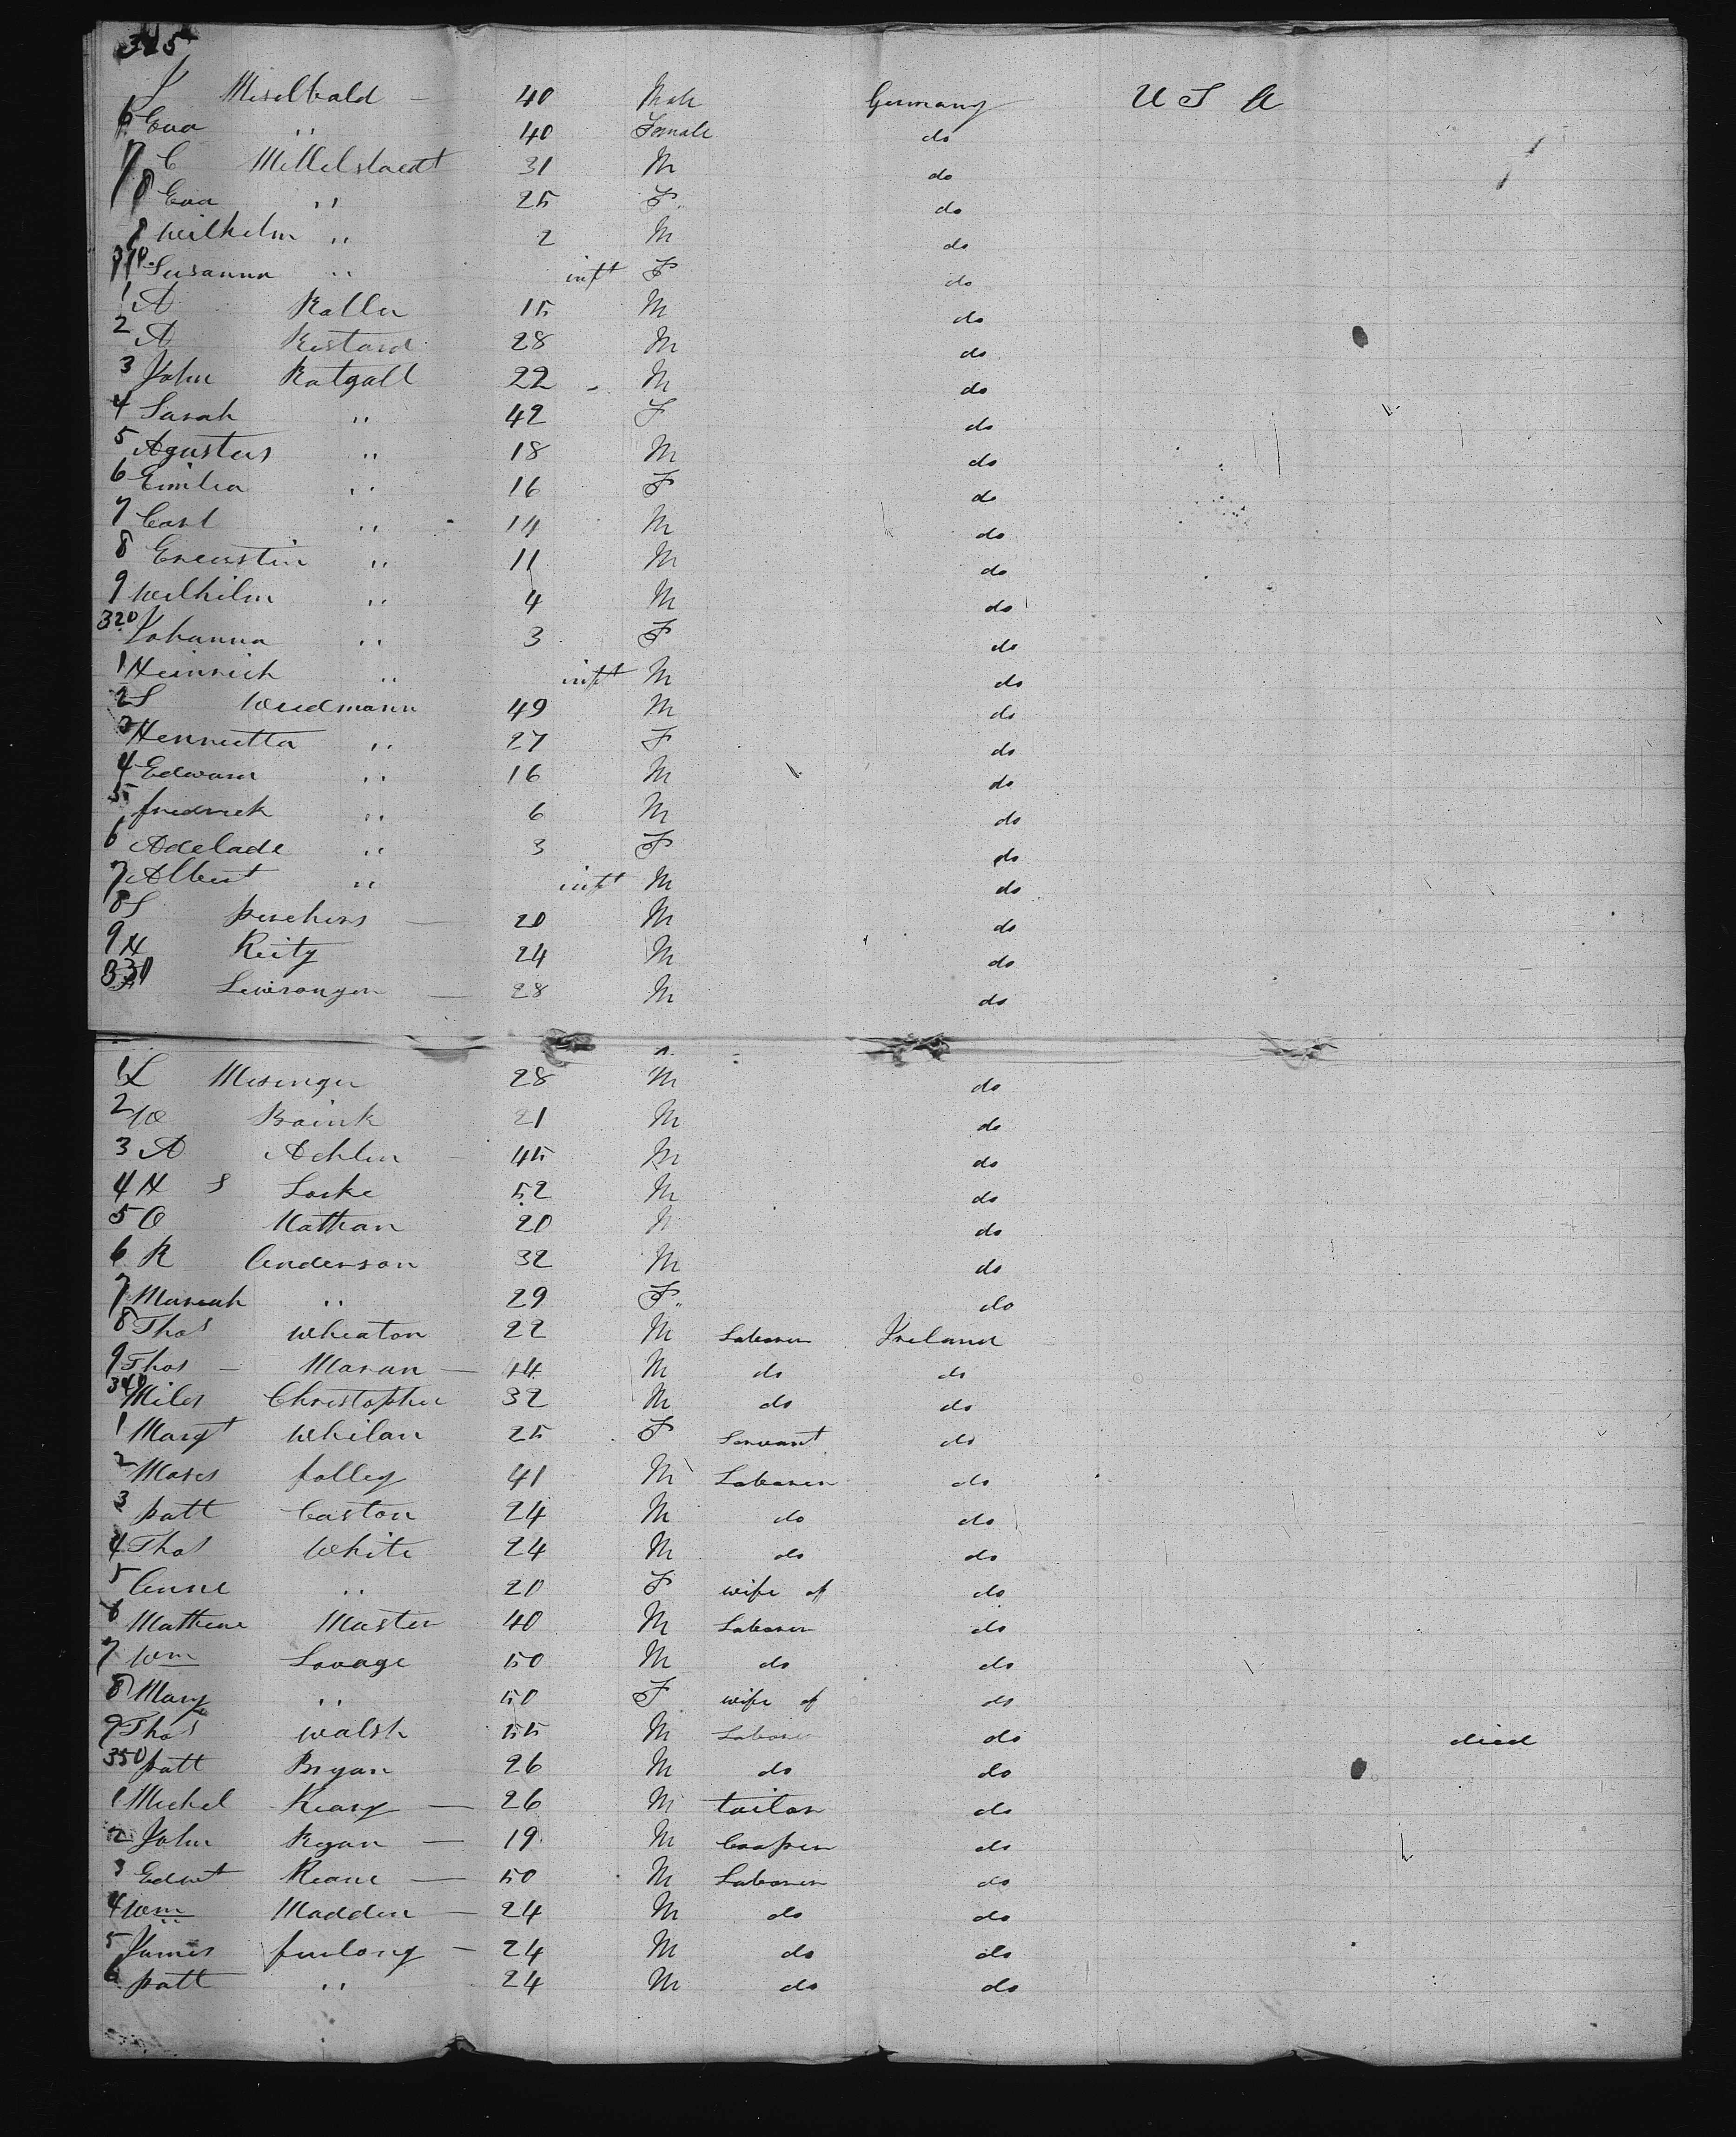 325
J Miselbald — 40 Male Germany U S A
6 Eva " 40 Female do
7 C Mettelstaedt 31 M do
8 Eva " 25 F. do
9 Wilhelm " 2 M do
310 Susanna " inft F do
1 A Kaller 15 M do
2 A Kistard 28 M do
3 John Ratgall 22 M do
4 Sarah " 42 F do
5 Agustus " 18 M do
6 Emilia " 16 F do
7 Carl " 14 M do
8 Ernestin " 11 M do
9 Wilhilm " 4 M do
320 Johanna " 3 F do
1 Heinrich " inft M do
2 S Weidmann 49 M do
3 Henrietta " 27 F do
4 Edward " 16 M do
5 fredrick " 6 M do
6 Adelade " 3 F do
7 Albert " inft M do
8 S — 20 M do
9 H Reity 24 M do
330 — 28 M do
1 L Mesinger 28 M do
2 W Baink 21 M do
3 A Achlen — 45 M do
4 H S Locke 52 M do
5 O Nathan 20 M do
6 R Anderson 32 M do
7 Mariah " 29 F. do
8 Thos Wheaton 22 M Laborer Ireland
9 Thos — Moran — 44 M do do
340 Miles Christopher 32 M do do
1 Margt Whilan 25 F Servant do
2 Moses folley 41 M Laborer do
3 patt Caston 24 M do do
4 Thos White 24 M do do
5 Anne " 20 F wife of do
6 Mathew Master 40 M Laborer do
7 Wm Savage 50 M do do
8 Mary " 50 F wife of do
9 Thos Walsh 55 M Laborer do died
350 patt Bryan 26 M do do
1 Michel Keary — 26 M tailor do
2 John Ryan — 19 M Cooper do
3 Edwt Keane — 50 M Laborer do
4 Wm Madden — 24 M do do
5 James furlong — 24 M do do
6 patt " 24 M do do